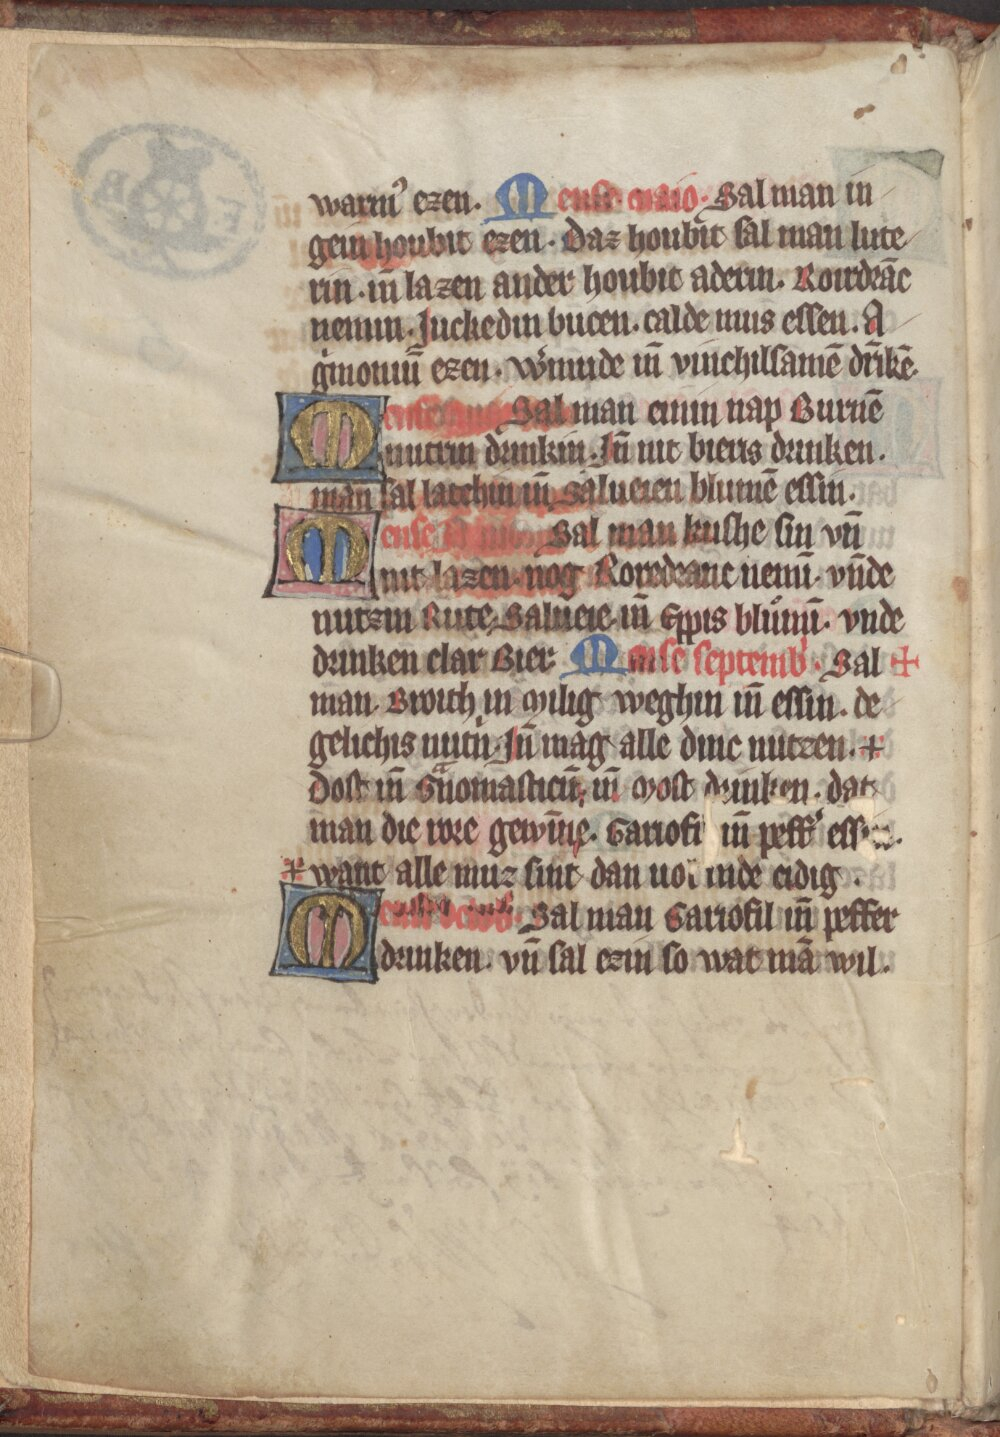 warm̄ ezen. Mense maio. Sal man in
gein houbit ezen. Daz houbit sal man lute
rin. in̄ lazen ander houbit aderin. Roirdrāc
nemin. Juckedin bucen. calde mus essen. A
gmoniū ezen. Wirmude in̄ vinchilsamē drīkē.
Mense Sal man einin nap Burnē
nutrin drinkin. Jn̄ nit bieris drinken.
man sal latchin in̄ Salueien blumē essin.
Mense Sal man kushe sin vn̄
nit lazen. nog Roredranc nemī. vn̄de
nutzin Rute, Salueie. in̄ Eppis blůmī. vnde
drinken clar Bier. Mense septemb'. Sal
man. Broith in milig weghin in̄ essin. de
gelichis nutī. Jn̄ mag alle dinc nutzen. +
Dost in̄ Gͣnomasticū, in̄ Most drinken. dat
man die vore gewīne. Gariofil in̄ peff' essin.
+ want alle muz sint dan uol inde eidig.
Mense octob'. Sal man Gariofil in̄ peffer
drinken. vn̄ sal ezin so wat mā wil.